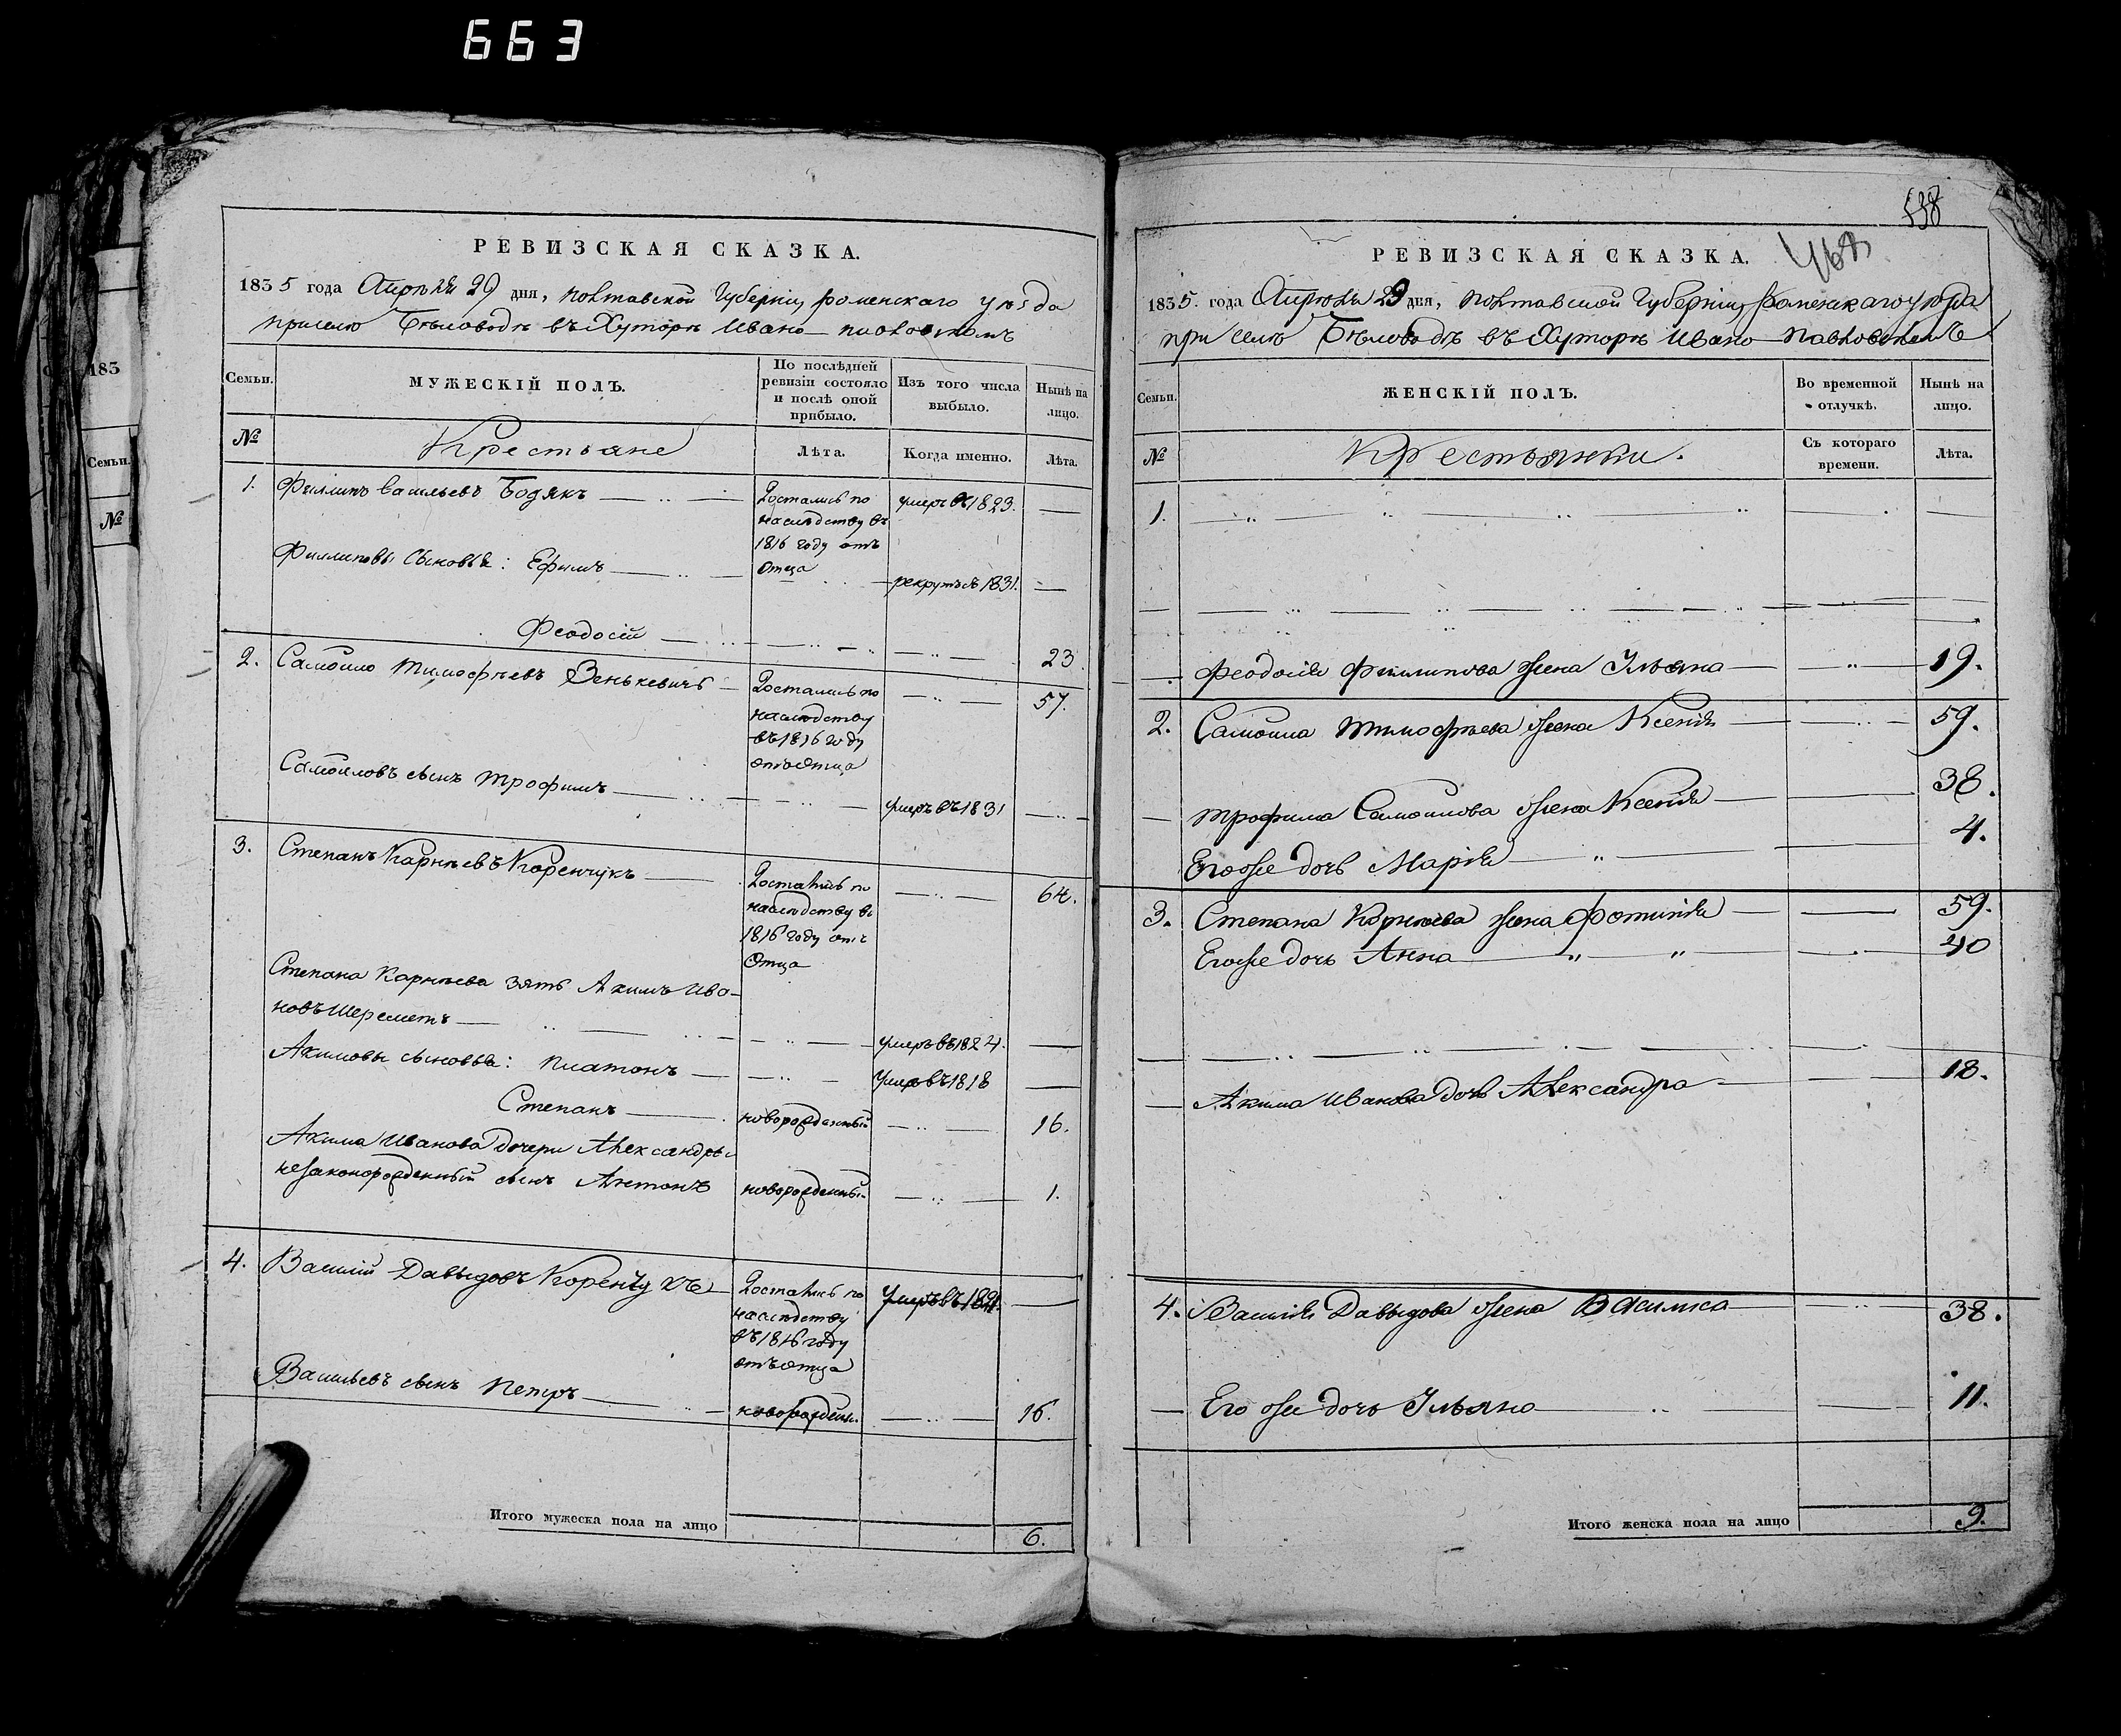 663
РЕВИЗСКАЯ СКАЗКА.
1835 года Апрѣля 29 дня, Полтавской Губерніи, роменскаго уѣзда
при селѣ Бѣловодѣ въ Хуторѣ Ивано-павловскомъ
Семьи.
МУЖЕСКІЙ ПОЛЪ.
По послѣдней ревизіи состояло и послѣ оной прибыло.
Изъ того числа выбыло.
Нынѣ на лицо.
№
Крестьяне
Лѣта.
Когда именно.
Лѣта.
1. Филипъ Васильевъ Бодякъ
Достались по наслѣдству въ 1816 году отъ Отца
умеръ въ 1823.
Филиповы Сыновья: Ефимъ
рекрутъ съ 1831.
Феодосій
23
2. Самойло Тимофѣевъ Зенькевичъ
Достались по наслѣдству въ 1816 году отъ отца
57.
Самойловъ сынъ Трофимъ
умеръ въ 1831
3. Степанъ Карнѣевъ Коренчукъ
Достались по наслѣдству въ 1816 году отъ Отца
64.
Степана Карнѣева зять Акимъ Ива-
новъ Шереметъ
умеръ въ 1824.
Акимовы сыновья: Платонъ
Умеръ въ 1818
Степанъ
новорожденный
16.
Акима Иванова дочери Александры
незаконорожденный сынъ Антонъ
новорожденный
1.
4. Василій Давыдовъ Коренчукъ
Достались по наслѣдству въ 1816 году отъ отца
Умеръ въ
Васильевъ сынъ Петръ
новорожден.
16.
Итого мужеска пола на лицо
6.
538
РЕВИЗСКАЯ СКАЗКА.
1835. года Апрѣля 29 дня, Полтавской Губерніи, Роменскаго уѣзда
при селѣ Бѣловодѣ въ Хуторѣ Ивано-Павловскомъ
Семьи.
ЖЕНСКІЙ ПОЛЪ.
Во временной отлучкѣ.
Нынѣ на лицо.
№
Крестьянки.
Съ котораго времени.
Лѣта.
1.
Феодосія Филипова жена Ульяна
19.
2. Самойла Тимофѣева жена Ксенія
59.
Трофима Самойлова жена Ксенія
38.
Его же дочь Марія
4.
3. Степана Корнѣева жена Фотинія
59.
Его же дочь Анна
40
Акима Иванова дочь Александра
18.
4. Василія Давыдова жена Василиса
38.
Его же дочь Ульяна
11.
Итого женска пола на лицо
9.
183
Семьи.
№